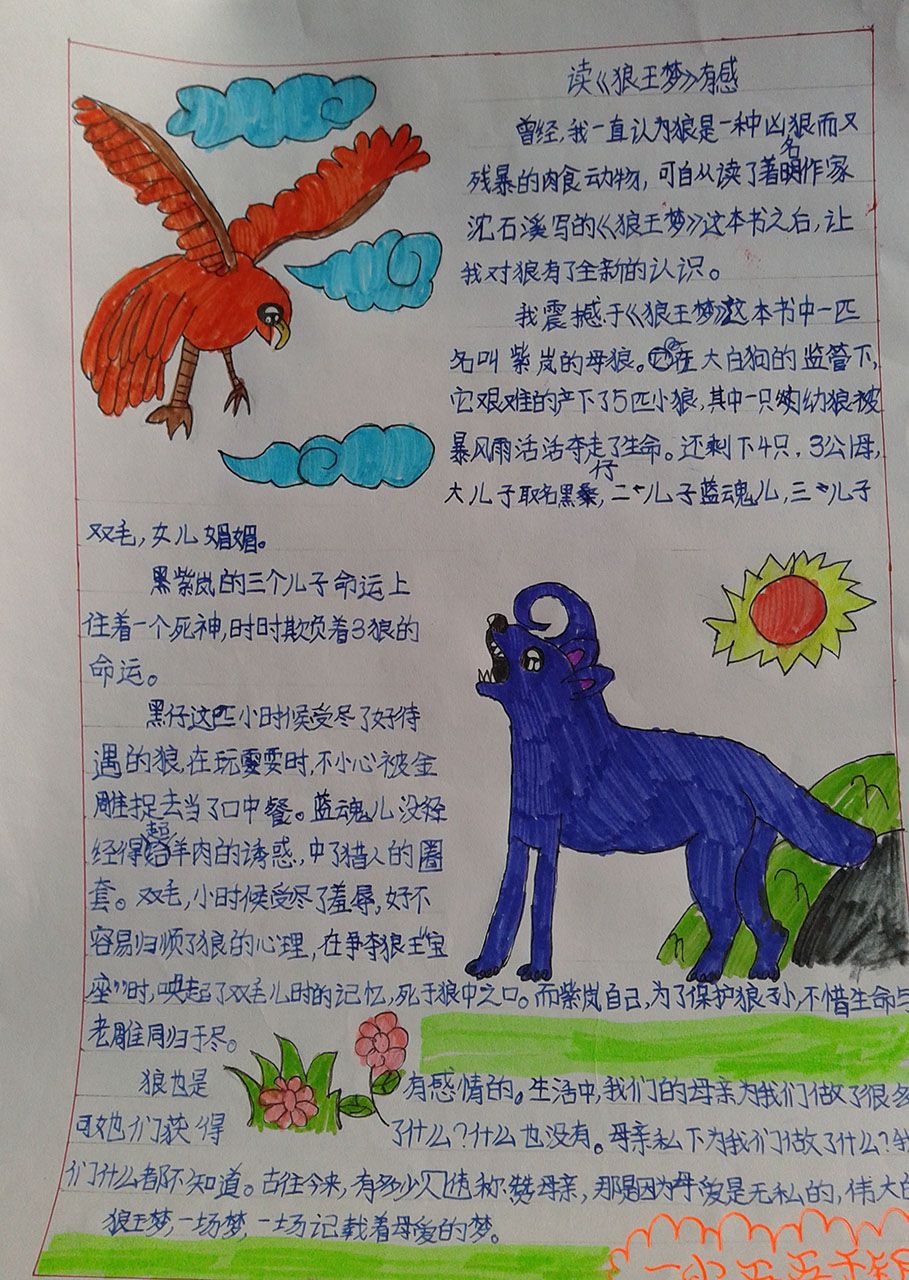 读《狼王梦》有感
曾经,我一直认为狼是一种凶狠而又
残暴的肉食动物,可自从读了著名作家
沈石溪写的《狼王梦》这本书之后,让
我对狼有了全新的认识。
我震撼于《狼王梦》这本书中一匹
名叫紫岚的母狼。在大白狗的监管下,
它艰难的产下了5匹小狼,其中一只幼狼被
暴风雨活活夺走了生命。还剩下4只,3公1母,
大儿子取名黑仔,二儿子蓝魂儿,三儿子
双毛,女儿媚媚。
黑紫岚的三个儿子命运上
住着一个死神,时时欺负着3狼的
命运。
黑仔这匹小时候受尽了好待
遇的狼,在玩耍时,不小心被金
雕捉去当了口中餐。蓝魂儿没经
经得起羊肉的诱惑,中了猎人的圈
套。双毛,小时候受尽了羞辱,好不
容易归顺了狼的心理,在争夺狼王“宝
座”时,唤起了双毛儿时的记忆,死于狼中之口。而紫岚自己,为了保护狼孙,不惜生命与
老雕同归于尽。
狼也是有感情的。生活中,我们的母亲为我们做了很多
可她们获得了什么?什么也没有。母亲私下为我们做了什么?我
们什么都不知道。古往今来,有多少人连称赞母亲,那是因为母爱是无私的,伟大的
狼王梦,一场梦,一场记载着母爱的梦。